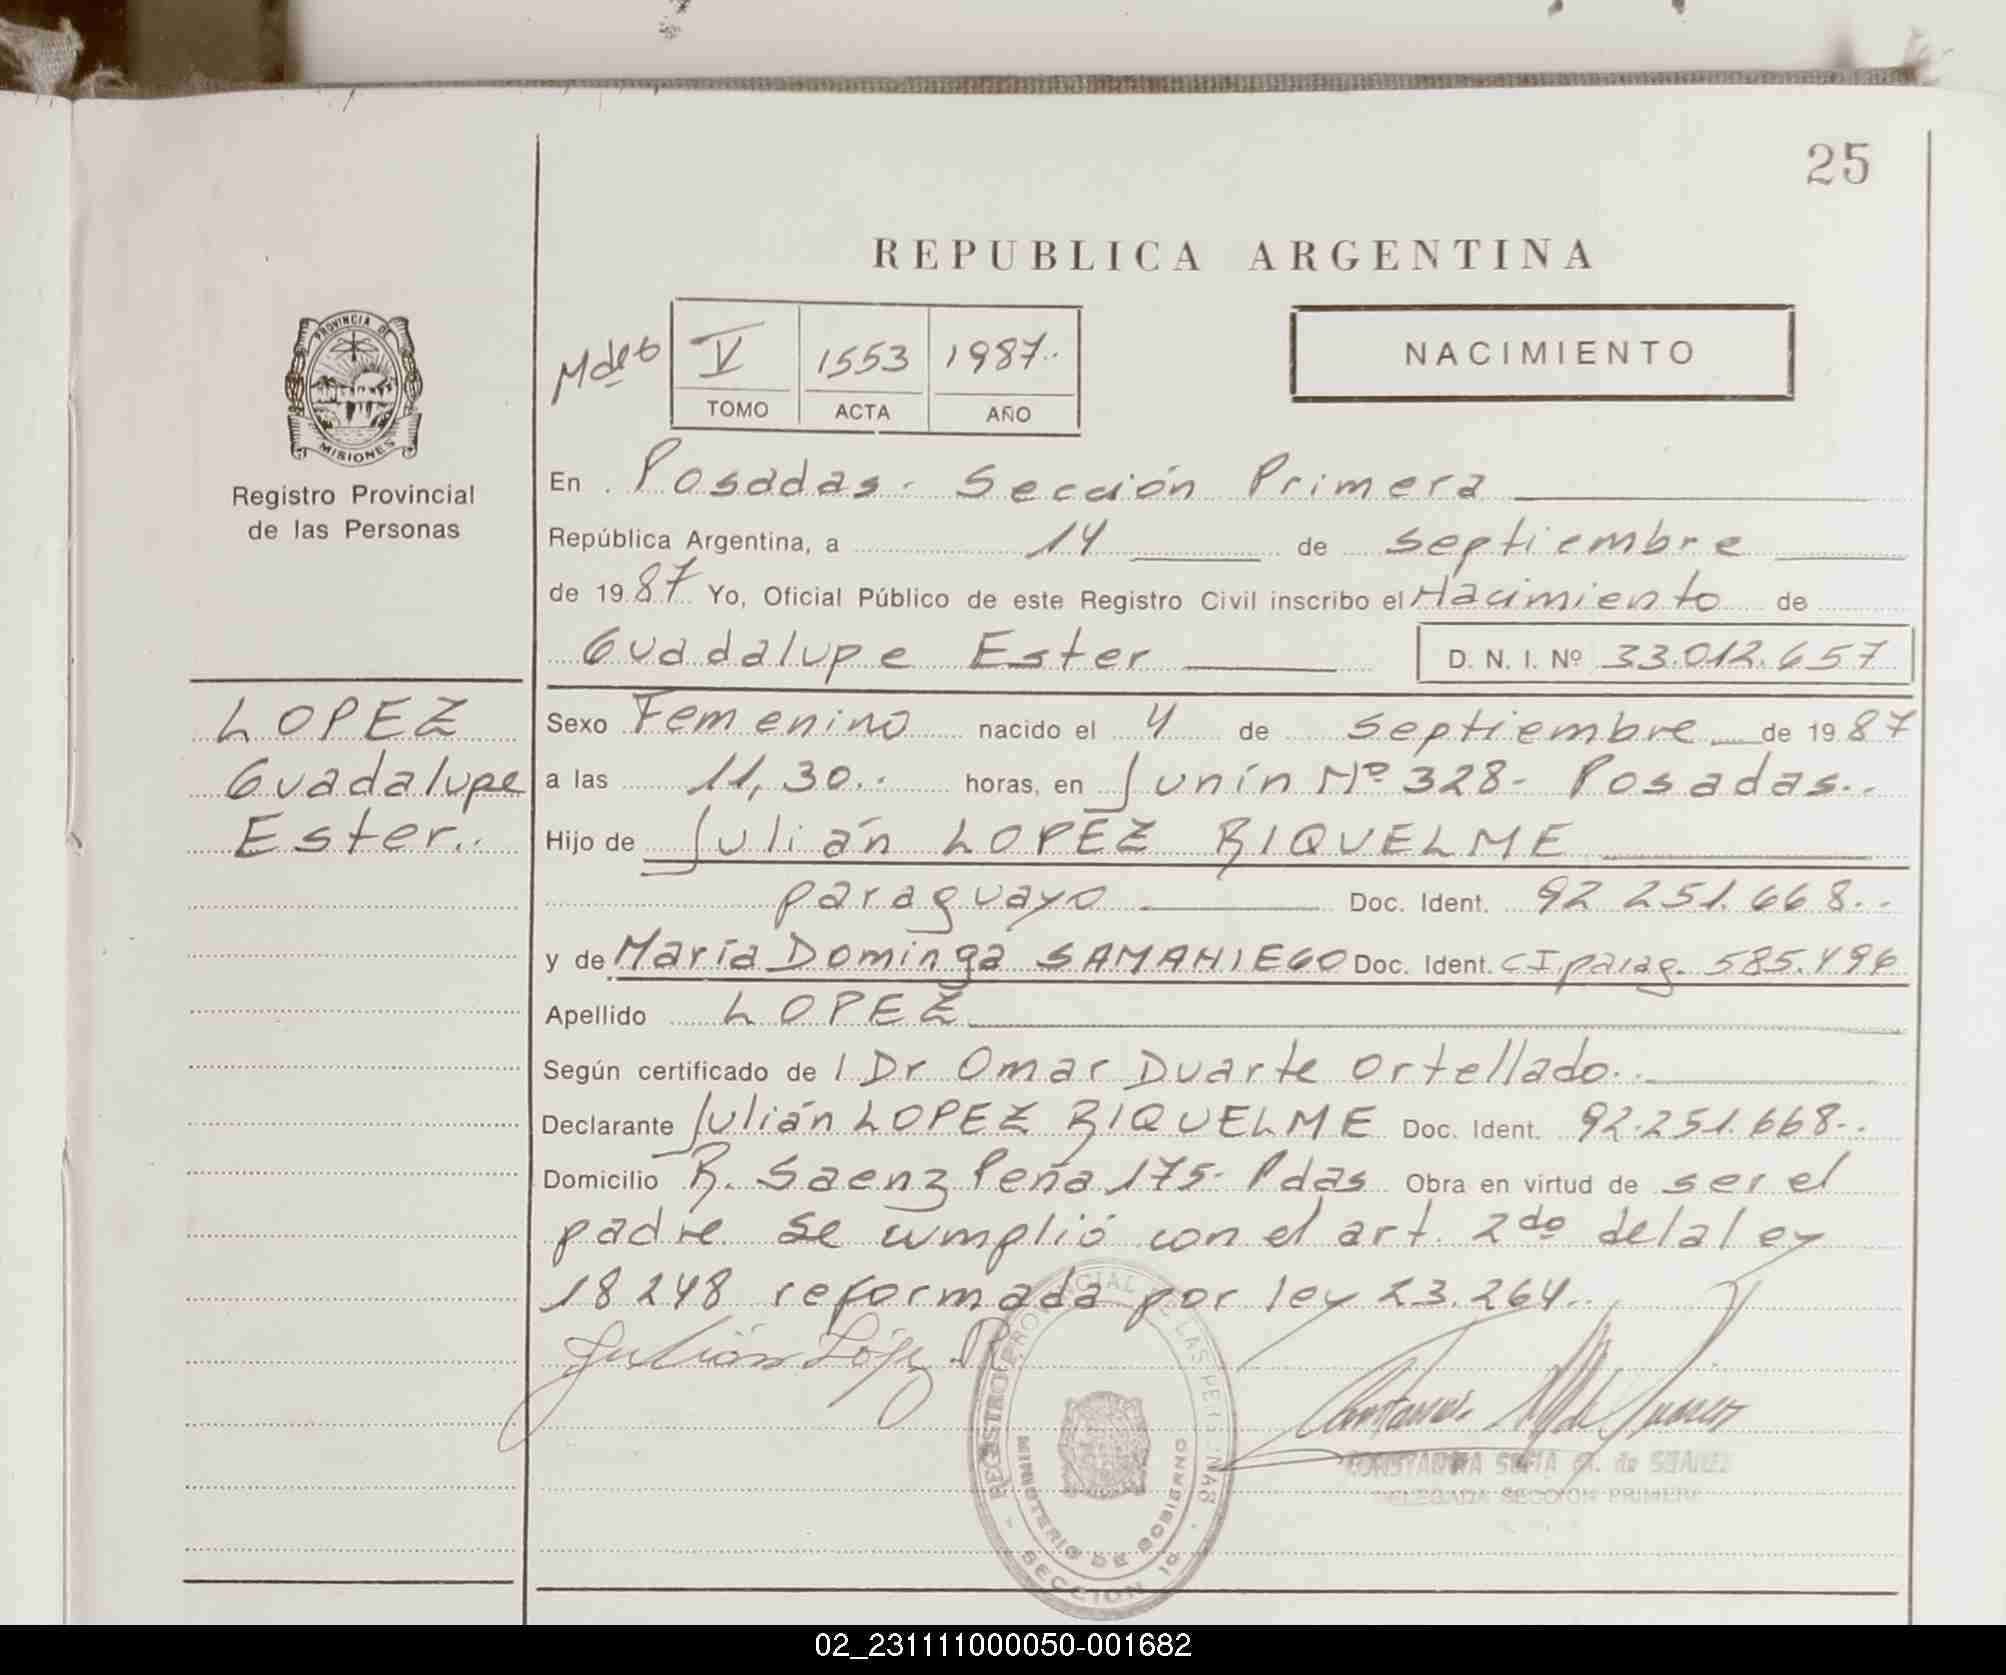 25
REPUBLICA ARGENTINA
PROVINCIA DE
MISIONES
Registro Provincial
de las Personas
V 1553 1987..
TOMO ACTA AÑO
NACIMIENTO
En Posadas. Sección Primera
República Argentina, a 14 de septiembre
de 1987 Yo, Oficial Público de este Registro Civil inscribo el Nacimiento de
Guadalupe Ester D. N. I. Nº 33.012.657
LOPEZ
Guadalupe
Ester..
Sexo Femenino nacido el 4 de septiembre de 1987
a las 11,30.. horas, en Junín Nº 328- Posadas..
Hijo de Julián LOPEZ RIQUELME
paraguayo Doc. Ident. 92 251.668..
y de María Dominga SAMANIEGO Doc. Ident. CI.parag. 585.496
Apellido LOPEZ
Según certificado de l Dr Omar Duarte Ortellado..
Declarante Julián LOPEZ RIQUELME Doc. Ident. 92.251.668-.
Domicilio R. Saenz Peña 175- Pdas Obra en virtud de ser el
padre. Se cumplió con el art. 2do de la ley
18248 reformada por ley 23.264..
Julián López R
REGISTRO PROVINCIAL DE LAS PERSONAS
MINISTERIO DE GOBIERNO
SECCION 1a
de SUAREZ
DELEGADA SECCION PRIMERA
02_231111000050-001682